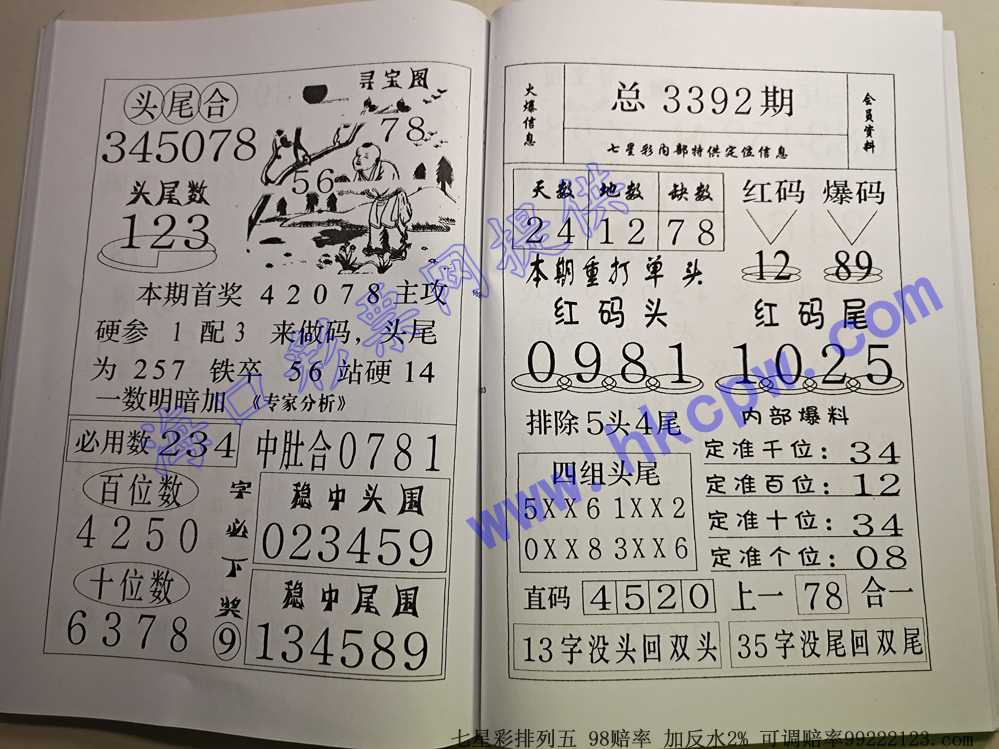 头尾合
345078
头尾数
123
寻宝图
78
56
本期首奖 4 2 0 7 8 主攻
硬参 1 配 3 来做码，头尾
为 257 铁卒 56 站硬 14
一数明暗加 《专家分析》
必用数 234
中肚合0781
百位数
4250
十位数
6378
字必下奖⑨
稳中头围
023459
稳中尾围
134589
火爆信息
总3392期
七星彩内部特供定位信息
会员资料
天数 地数 缺数
24 12 78
红码 爆码
12 89
本期重打单头
红码头
0981
红码尾
1025
排除5头4尾
四组头尾
5XX6 1XX2
0XX8 3XX6
内部爆料
定准千位：34
定准百位：12
定准十位：34
定准个位：08
直码 4520 上一 78 合一
13字没头回双头
35字没尾回双尾
海口彩票网提供
www.hkcpw.com
七星彩排列五 98赔率 加反水2% 可调赔率99222123.com